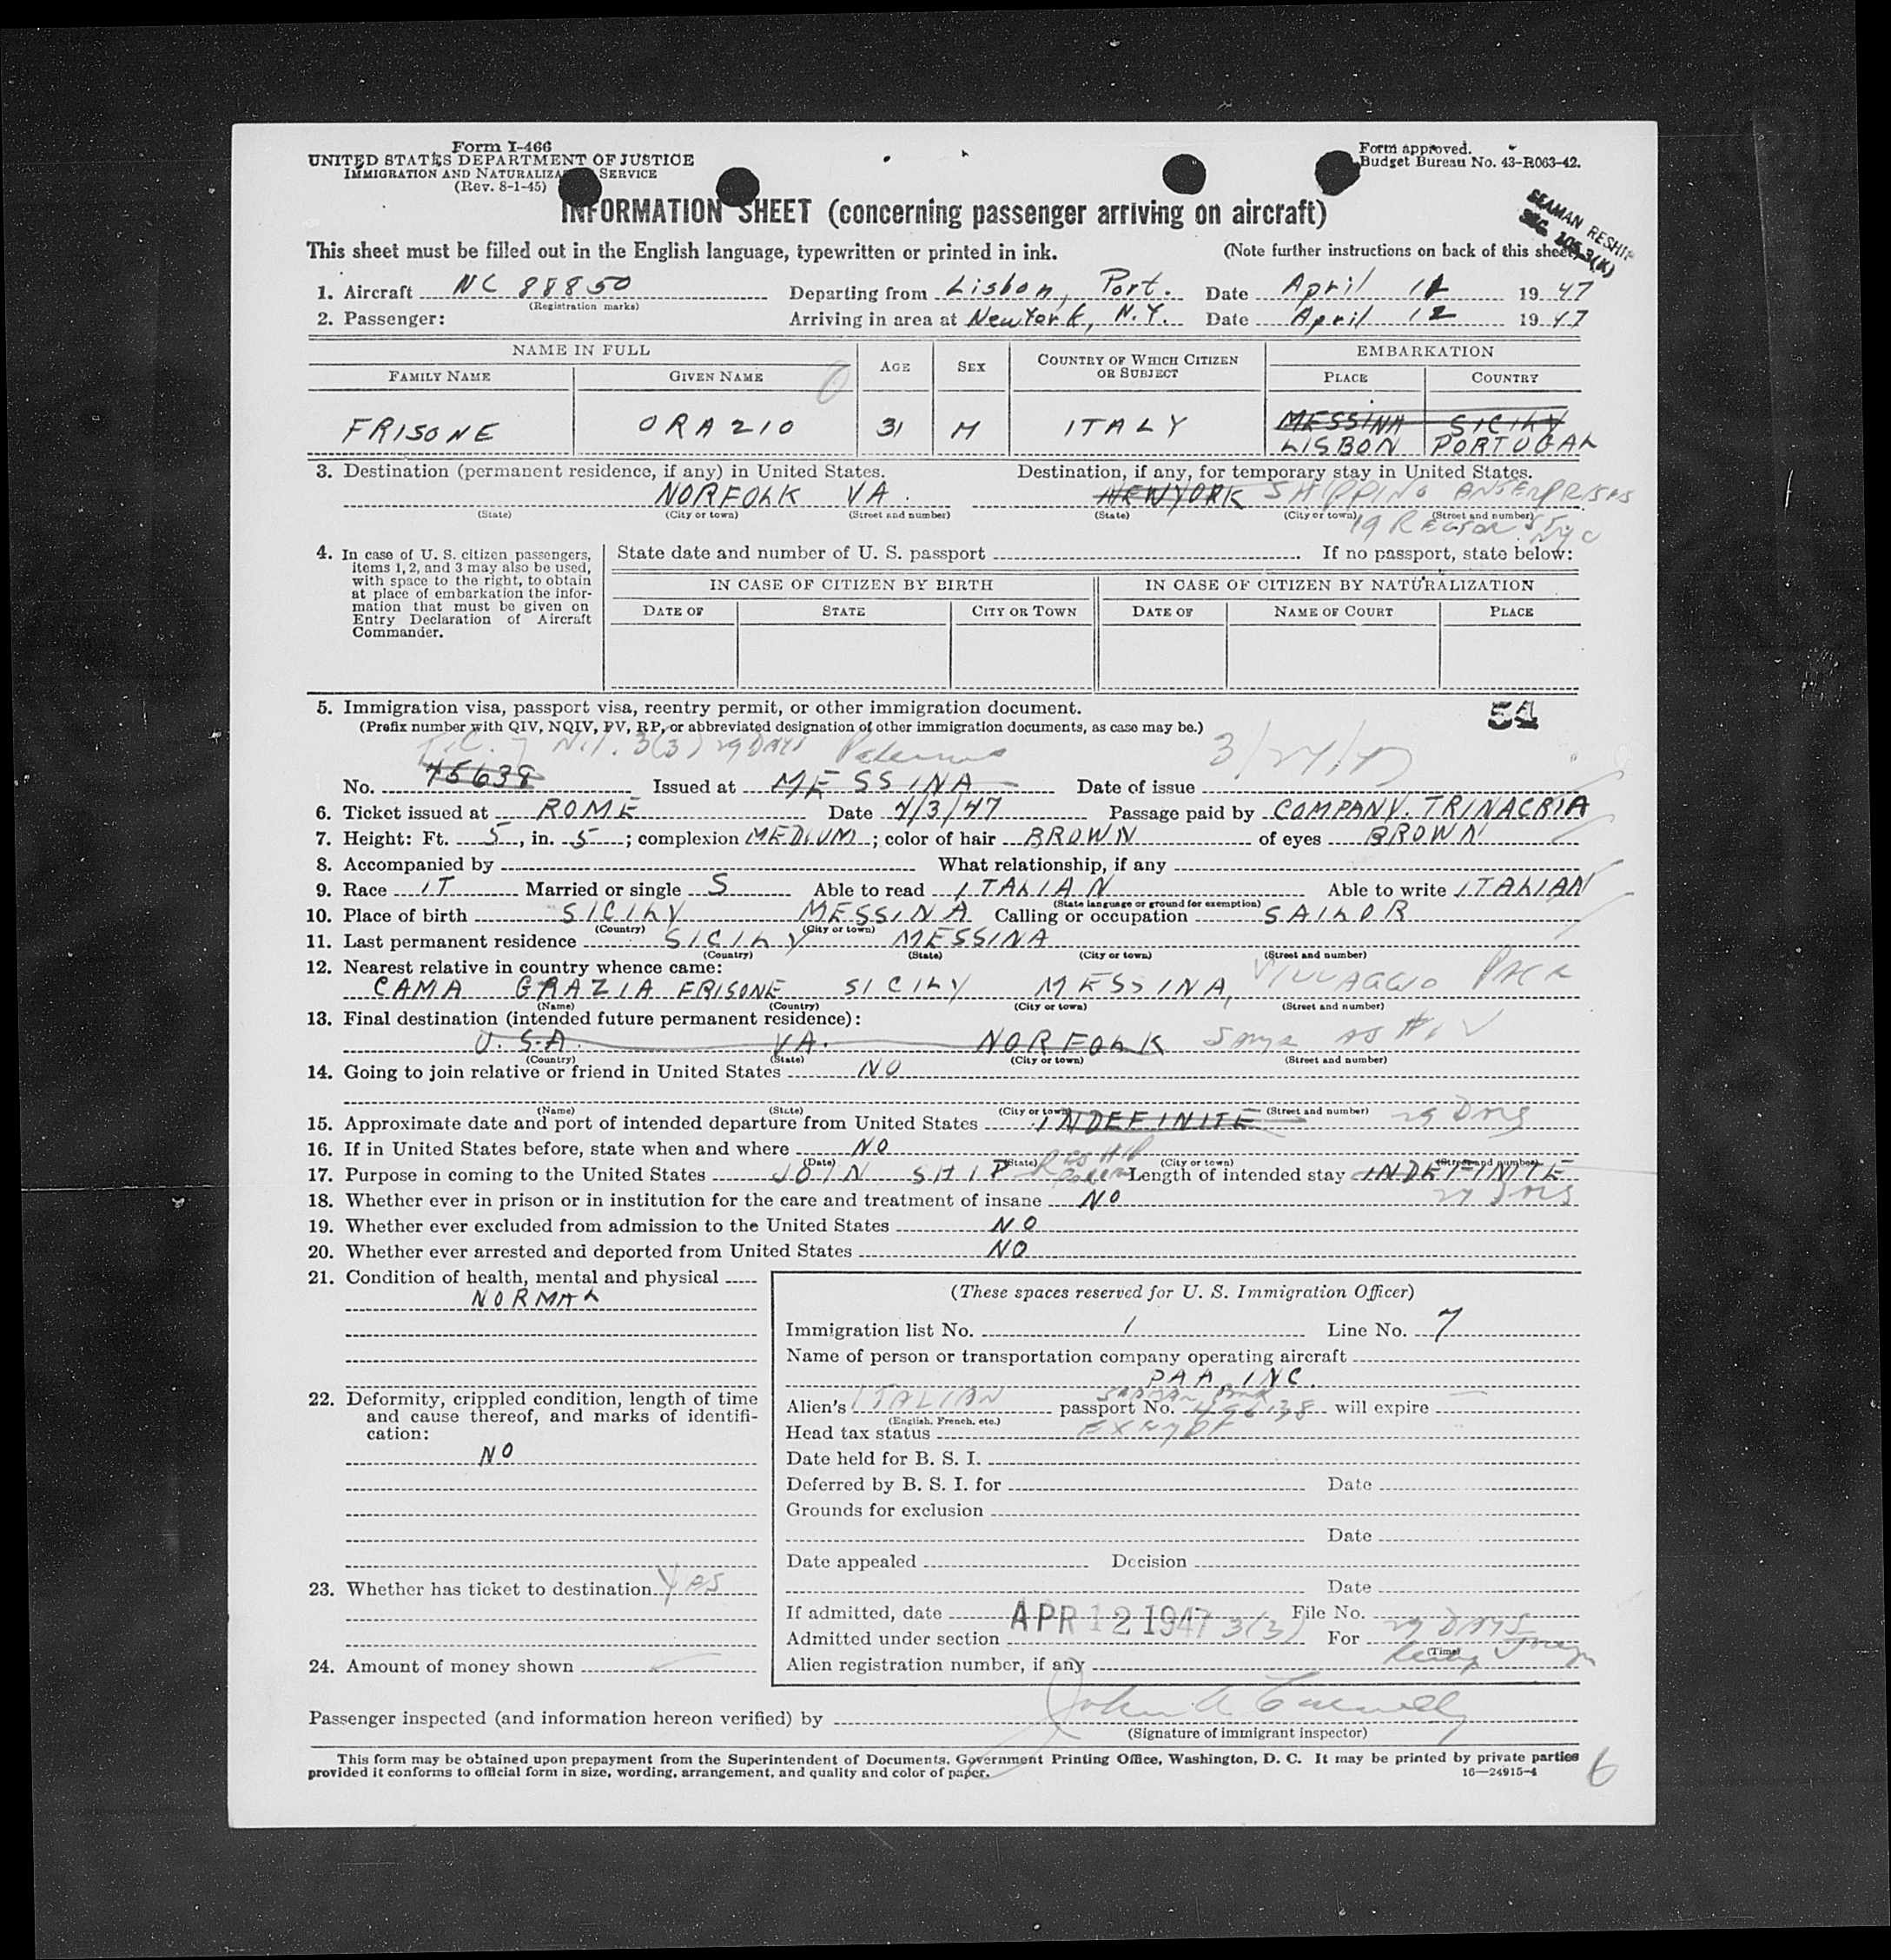 Form I-466
UNITED STATES DEPARTMENT OF JUSTICE
IMMIGRATION AND NATURALIZA SERVICE
(Rev. 8-1-45)
Form approved.
Budget Bureau No. 43-R063-42.
INFORMATION SHEET (concerning passenger arriving on aircraft)
SEAMAN RESHIP
SEC 105.3(K)
This sheet must be filled out in the English language, typewritten or printed in ink. (Note further instructions on back of this sheet)
1. Aircraft NC 88850 Departing from Lisbon, Port. Date April 11 1947
(Registration marks)
2. Passenger: Arriving in area at New York, N.Y. Date April 12 1947
NAME IN FULL AGE SEX COUNTRY OF WHICH CITIZEN OR SUBJECT EMBARKATION
FAMILY NAME GIVEN NAME PLACE COUNTRY
MESSINA SICILY
FRISONE ORAZIO 31 M ITALY LISBON PORTUGAL
3. Destination (permanent residence, if any) in United States. Destination, if any, for temporary stay in United States.
NORFOLK VA. NEW YORK SHIPPING ENTERPRISES
(State) (City or town) (Street and number) (State) (City or town) (Street and number)
19 Rector St NYC
4. In case of U. S. citizen passengers, items 1, 2, and 3 may also be used, with space to the right, to obtain at place of embarkation the information that must be given on Entry Declaration of Aircraft Commander.
State date and number of U. S. passport If no passport, state below:
IN CASE OF CITIZEN BY BIRTH IN CASE OF CITIZEN BY NATURALIZATION
DATE OF STATE CITY OR TOWN DATE OF NAME OF COURT PLACE
5. Immigration visa, passport visa, reentry permit, or other immigration document. 54
(Prefix number with QIV, NQIV, PV, RP, or abbreviated designation of other immigration documents, as case may be.)
3(3) 29 DAYS Palermo 3/27/47
No. 45638 Issued at MESSINA Date of issue
6. Ticket issued at ROME Date 4/3/47 Passage paid by COMPANY. TRINACRIA
7. Height: Ft. 5, in. 5; complexion MEDIUM; color of hair BROWN of eyes BROWN
8. Accompanied by What relationship, if any
9. Race IT Married or single S Able to read ITALIAN Able to write ITALIAN
(State language or ground for exemption)
10. Place of birth SICILY MESSINA Calling or occupation SAILOR
(Country) (City or town)
11. Last permanent residence SICILY MESSINA
(Country) (State) (City or town) (Street and number)
12. Nearest relative in country whence came:
CAMA GRAZIA FRISONE SICILY MESSINA, VILLAGGIO PACE
(Name) (Country) (City or town) (Street and number)
13. Final destination (intended future permanent residence):
U.S.A. VA. NORFOLK Same as #
(Country) (State) (City or town) (Street and number)
14. Going to join relative or friend in United States NO
(Name) (State) (City or town) (Street and number)
15. Approximate date and port of intended departure from United States INDEFINITE 29 Days
16. If in United States before, state when and where NO
(Date) (State) (City or town) (Street and number)
17. Purpose in coming to the United States JOIN SHIP RESHIP Length of intended stay INDEFINITE
29 Days
18. Whether ever in prison or in institution for the care and treatment of insane NO
19. Whether ever excluded from admission to the United States NO
20. Whether ever arrested and deported from United States NO
21. Condition of health, mental and physical
NORMAL
22. Deformity, crippled condition, length of time and cause thereof, and marks of identification:
NO
23. Whether has ticket to destination Yes
24. Amount of money shown
(These spaces reserved for U. S. Immigration Officer)
Immigration list No. 1 Line No. 7
Name of person or transportation company operating aircraft
PAA, INC.
Alien's ITALIAN passport No. will expire
(English, French, etc.)
Head tax status Exempt
Date held for B. S. I.
Deferred by B. S. I. for Date
Grounds for exclusion
Date
Date appealed Decision
Date
If admitted, date APR 12 1947 File No.
Admitted under section 3(3) For 29 DAYS
(Time)
Alien registration number, if any
Passenger inspected (and information hereon verified) by
(Signature of immigrant inspector)
This form may be obtained upon prepayment from the Superintendent of Documents, Government Printing Office, Washington, D. C. It may be printed by private parties
provided it conforms to official form in size, wording, arrangement, and quality and color of paper. 16—24915-4
6